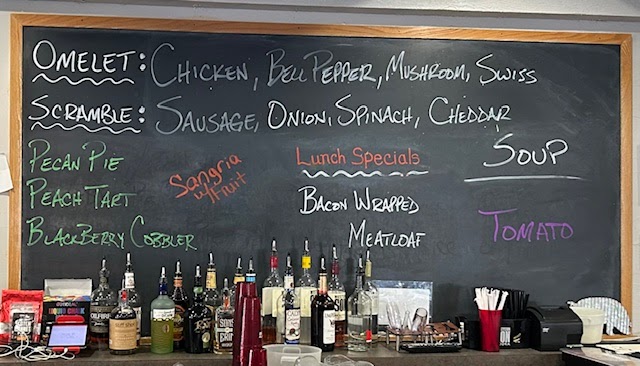 OMELET: CHICKEN, BELL PEPPER, MUSHROOM, SWISS
SCRAMBLE: SAUSAGE, ONION, SPINACH, CHEDDAR
PECAN PIE
PEACH TART
BLACKBERRY COBBLER
Sangria
w/fruit
Lunch Specials
BACON WRAPPED
MEATLOAF
SOUP
TOMATO